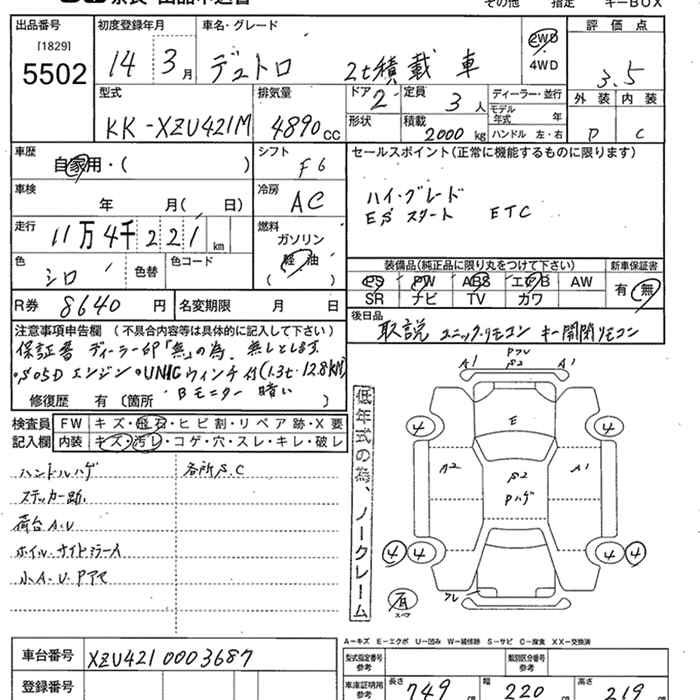 その他 指定 キーBOX
出品番号 [1829] 5502
初度登録年月 14 3月
車名・グレード デュトロ 2t積載車
2WD・4WD
評価点 3.5
型式 KK-XZU421M
排気量 4890cc
ドア 2
形状
定員 3人
積載 2000kg
ディーラー・並行
モデル年式 年
ハンドル 左・右
外装 D
内装 C
車歴 自家用・( )
シフト F6
セールスポイント(正常に機能するものに限ります)
ハイ・グレード
ES スタート ETC
車検 年 月( 日)
冷房 AC
走行 11万4千221km
燃料 ガソリン 軽油 ( )
色 シロ 色替 色コード
装備品(純正品に限り丸をつけて下さい)
PS PW ABS エアB AW
SR ナビ TV カワ
新車保証書 有・無
R券 8640円
名変期限 月 日
後日品 取説 ユニックリモコン キー開閉リモコン
注意事項申告欄 (不具合内容等は具体的に記入して下さい)
保証書 ディーラー印「無」の為、無しとします。
・S05Dエンジン・UNICウィンチ付(1.3t・12.8KM)
Bモニター 暗い
修復歴 有(箇所 )
検査員記入欄
FW キズ・飛石・ヒビ割・リペア跡・X要
内装 キズ・汚レ・コゲ・穴・スレ・キレ・破レ
ハンドルハゲ 各所S.C
ステッカー跡
荷台A.U
ホイル・サイドミラーA
小A.U.Pアせ
低年式の為、ノークレーム
A1 S2 A1
E
A2 S2 A1
Pハゲ
4 4
4 4 4 4
有 スペア
A-キズ E-エクボ U-凹み W-補修跡 S-サビ C-腐食 XX-交換済
車台番号 XZU421 0003687
登録番号
型式指定番号 参考
類別区分番号 参考
車庫証明用 参考
長さ 749cm 幅 220cm 高さ 219cm